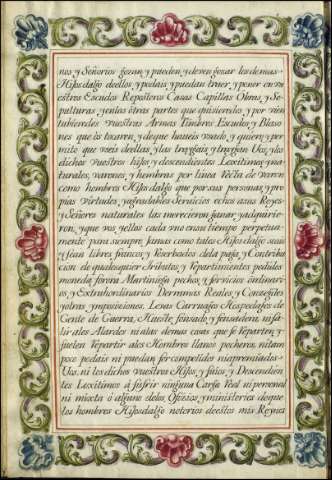 nos, y Señorios gozan, y pueden, y deven gozar los demas
Hijosdalgo deellos, y podais, y puedan traer, y poner en vu
estros Escudos Reposteros Casas Capillas Obras, y Se
pulturas, y enlos otras partes que quisieredes, y por vien
tubieredes vuestras Armas Timbres Escudos, y Blaso
nes que òs tocaren, y deque haueis vsado, y quiero, y per
mito que vseis deellas, y las traygais, y traygan Uos, y los
dichos vuestros hijos, y descendientes Lexitimos, y na
turales, varones, y hembras por linea Recta de varon
como hombres Hijosdalgo que por sus personas, y pro
pias Virtudes, y agradables Servicios echos alos Reyes
y Señores naturales las merecieron ganar, y adquirie
ron, y que vos, y ellos cada vno ensu tiempo perpetua
mente para siempre Jamas como tales Hijosdalgo seais
y sean libres francos, y Reserbados dela paga, y Contribu
cion de qualesquier Tributos, y Repartimientos pedidos
moneda forera Martiniega pechos, y servicios ordinari
os, y Extrahordinarios Derramas Reales, y Concegiles
votros ymposiciones Lena Carruages Hospedages de
Gente de Guerra, Hueste fonsado, y fonsadera, nisa
lir ales Alardes ni alas demas cosas que se Reparten, y
suelen Repartir alos Hombre llanos pecheros, ni tam
poco podais ni puedan ser compelidos niapremiados
Uos, ni los dichos vuestros Hijos, y hijas, y Descendien
tes Lexitimos â sufrir ninguna Carga Real ni personal
ni mixta ô alguno delos Oficios, y ministerios deque
los hombres Hijosdalgo notorios deestos mis Reynos